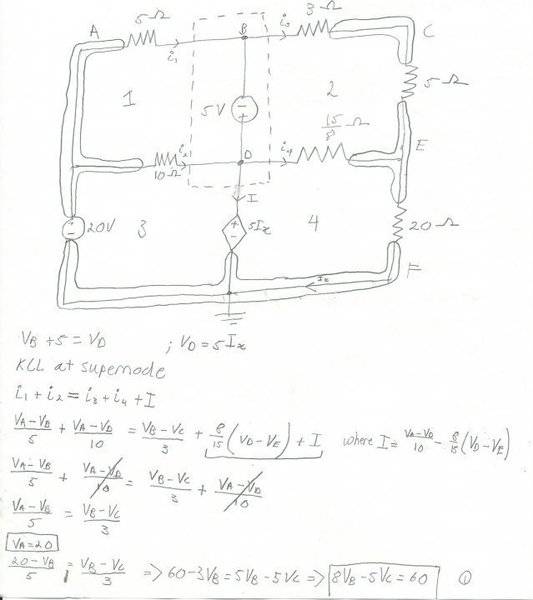 5Ω
3Ω
A
B
C
i₁
i₃
1
5V
-
+
2
5Ω
15/8 Ω
i₂
10Ω
D
i₄
E
I
20V
3
+
-
5Iₓ
4
20Ω
F
Iₓ
V_B + 5 = V_D ; V_D = 5Iₓ
KCL at supernode
i₁ + i₂ = i₃ + i₄ + I
(V_A - V_B)/5 + (V_A - V_D)/10 = (V_B - V_C)/3 + 8/15 (V_D - V_E) + I where I = (V_A - V_D)/10 - 8/15 (V_D - V_E)
(V_A - V_B)/5 + (V_A - V_D)/10 = (V_B - V_C)/3 + (V_A - V_D)/10
(V_A - V_B)/5 = (V_B - V_C)/3
V_A = 20
(20 - V_B)/5 = (V_B - V_C)/3 => 60 - 3V_B = 5V_B - 5V_C => 8V_B - 5V_C = 60 ①